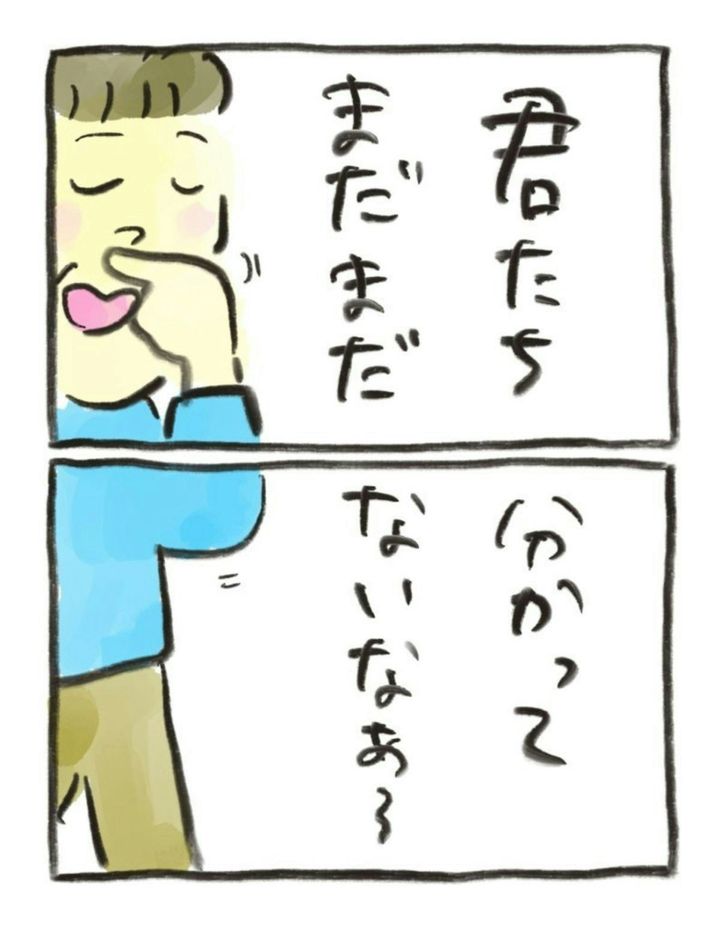 君たち
まだまだ
分かって
ないなぁ〜